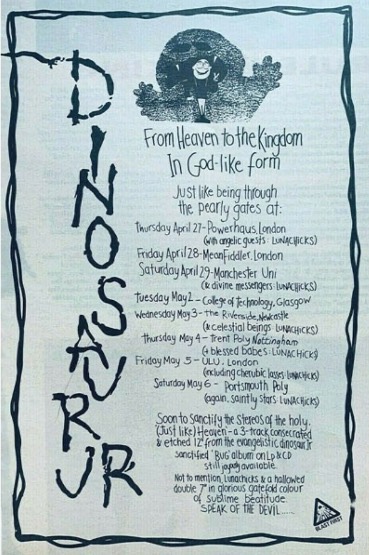 DINOSAUR JR
From Heaven to the Kingdom
In God-like form
Just like being through
the pearly gates at:
Thursday April 27 - Powerhaus, London
(with angelic guests: LUNACHICKS)
Friday April 28 - Mean Fiddler, London
Saturday April 29 - Manchester Uni
(& divine messengers: LUNACHICKS)
Tuesday May 2 - College of Technology, Glasgow
Wednesday May 3 - the Riverside, Newcastle
(& celestial beings: LUNACHICKS)
Thursday May 4 - Trent Poly Nottingham
(+ blessed babes: LUNACHICKS)
Friday May 5 - ULU, London
(including cherubic lasses: LUNACHICKS)
Saturday May 6 - Portsmouth Poly
(again, saintly stars: LUNACHICKS)
Soon to sanctify the stereos of the holy.
(Just like) Heaven - a 3-track consecrated
& etched 12" from the evangelistic dinosaur jr
sanctified 'BUG' album on Lp & CD
still joyously available.
Not to mention, Lunachicks & a hallowed
double 7" in glorious gatefold colour
of sublime beatitude.
SPEAK OF THE DEVIL......
BLAST FIRST